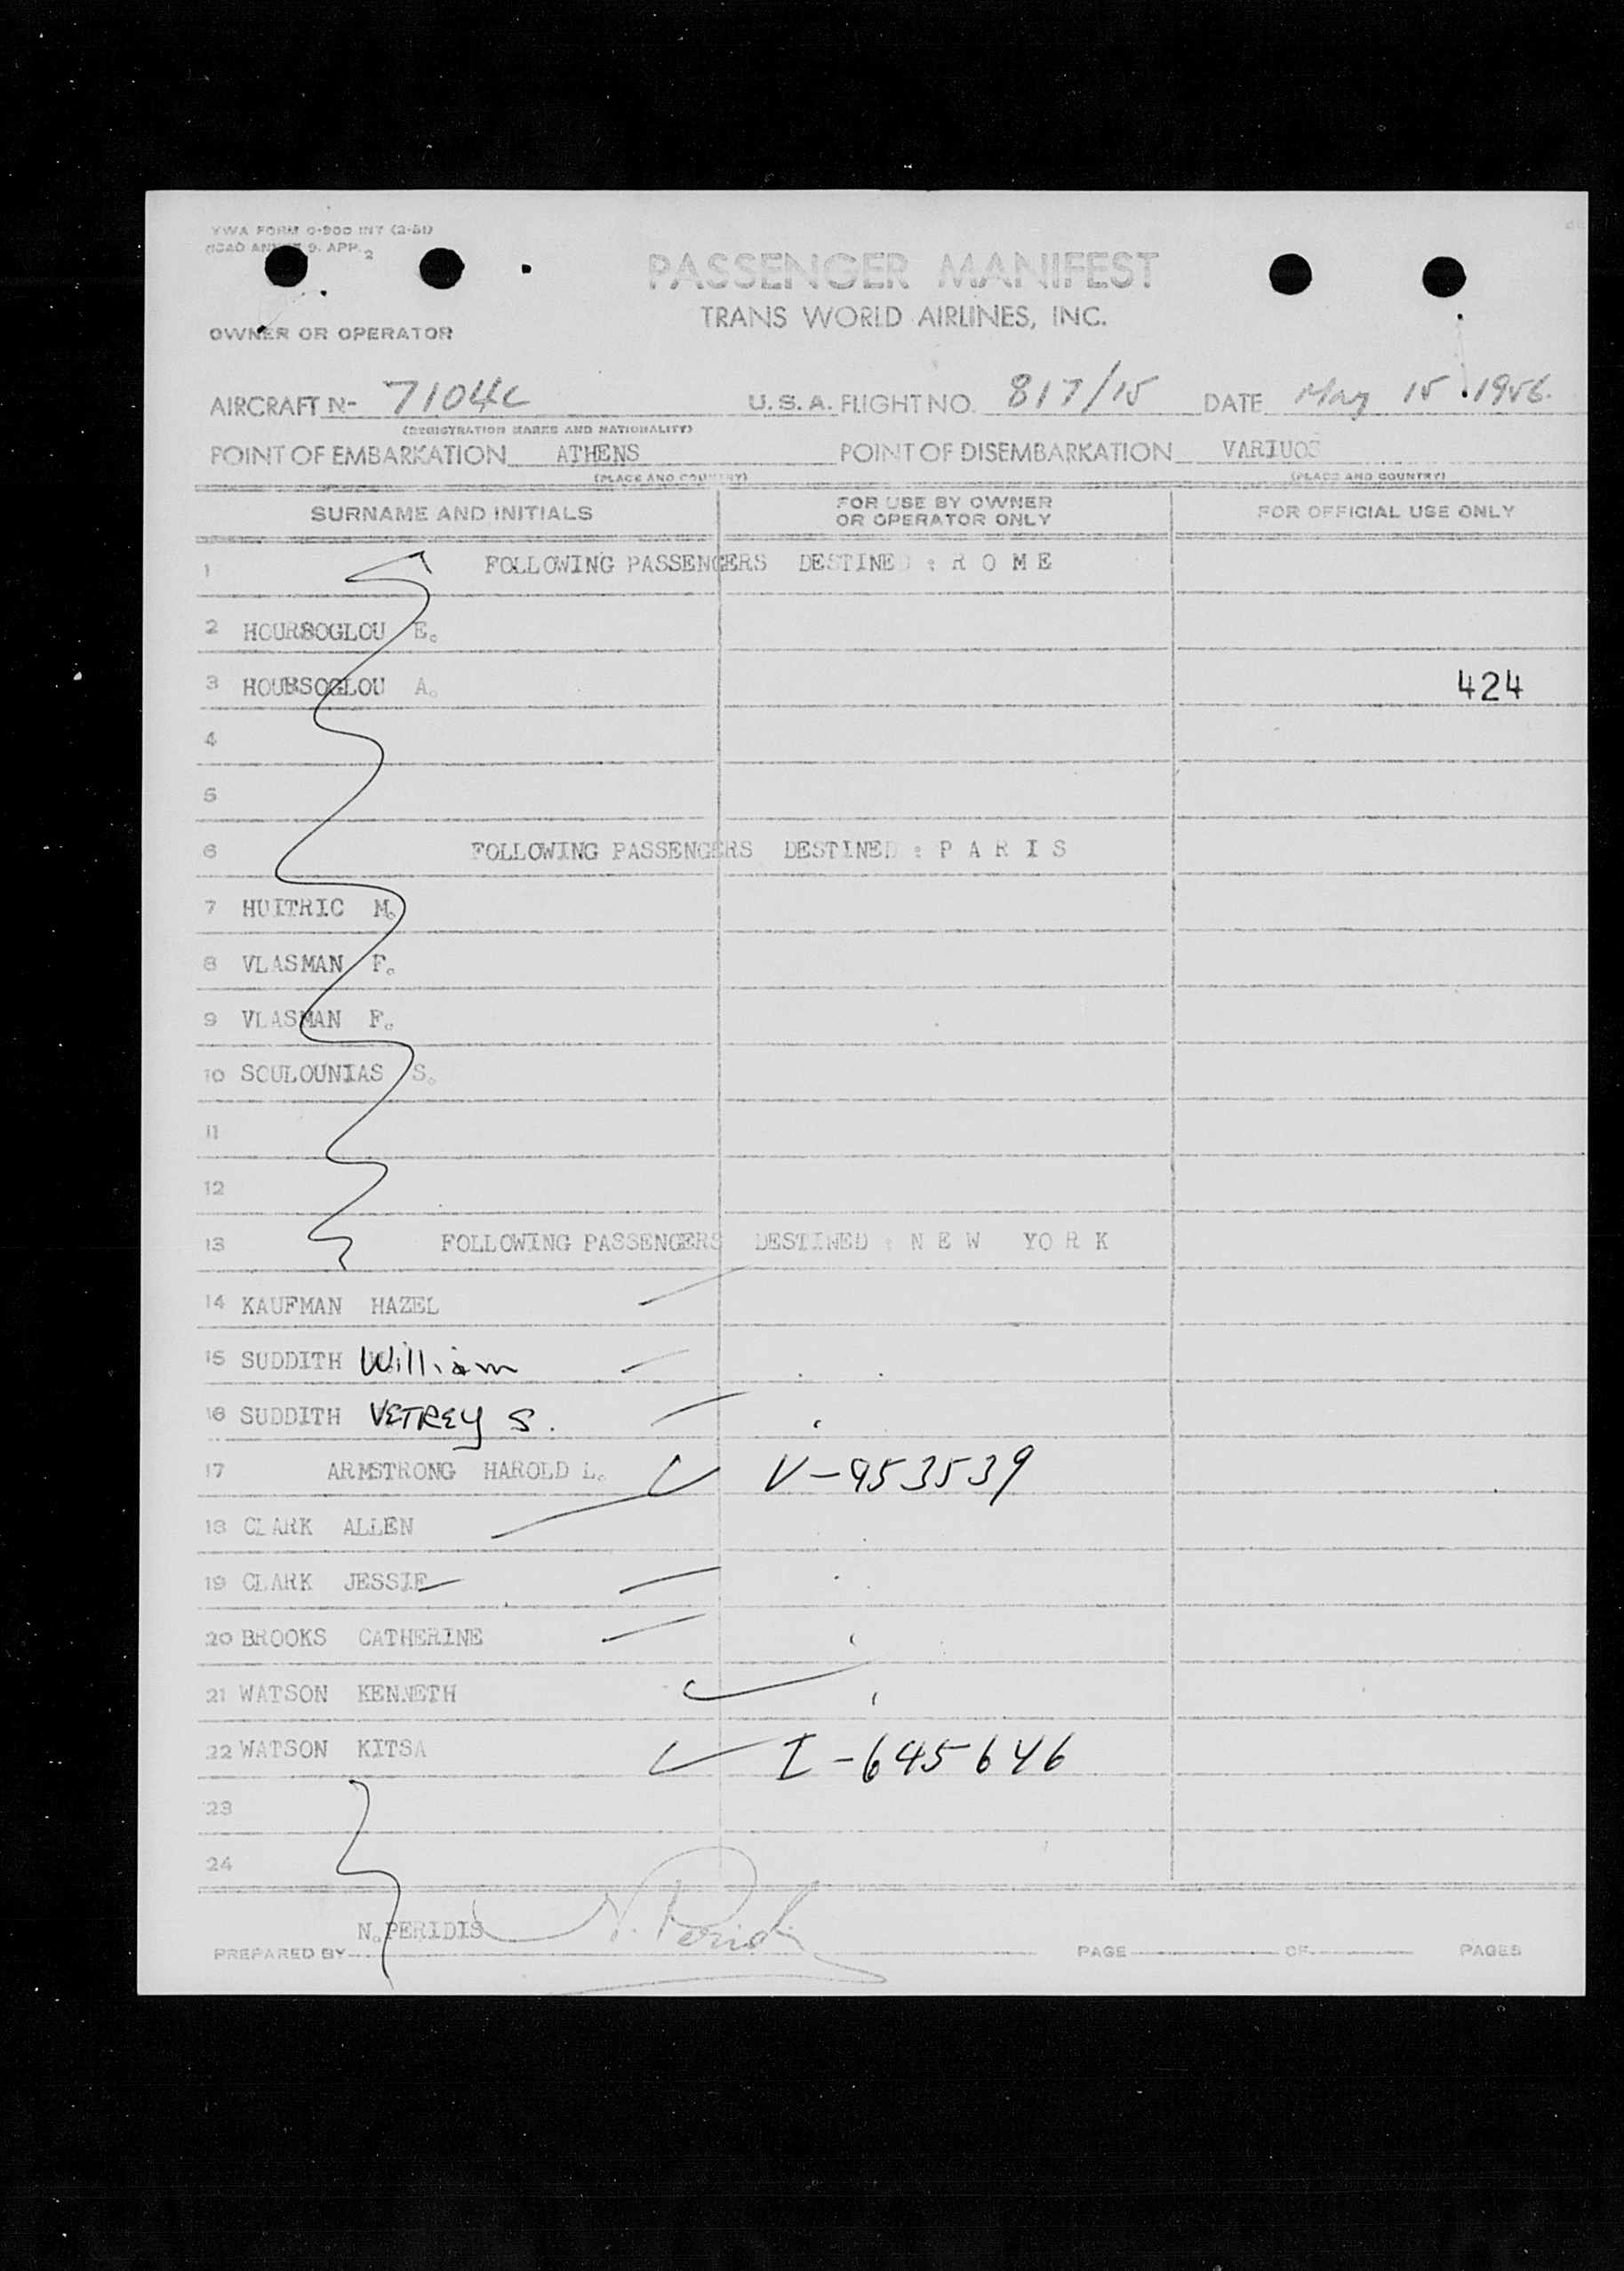 TWA FORM 0-900 INT (2-51)
ICAO ANNEX 9. APP. 2
PASSENGER MANIFEST
TRANS WORLD AIRLINES, INC.
OWNER OR OPERATOR
AIRCRAFT N- 7104C U.S.A. FLIGHT NO. 817/15 DATE May 15 1956.
(REGISTRATION MARKS AND NATIONALITY)
POINT OF EMBARKATION ATHENS POINT OF DISEMBARKATION VARIUOS
(PLACE AND COUNTRY) (PLACE AND COUNTRY)
SURNAME AND INITIALS FOR USE BY OWNER OR OPERATOR ONLY FOR OFFICIAL USE ONLY
1 FOLLOWING PASSENGERS DESTINED : R O M E
2 HOURSOGLOU E.
3 HOURSOGLOU A. 424
4
5
6 FOLLOWING PASSENGERS DESTINED : P A R I S
7 HUITRIC M.
8 VLASMAN F.
9 VLASMAN F.
10 SOULOUNIAS S.
11
12
13 FOLLOWING PASSENGERS DESTINED : N E W YO R K
14 KAUFMAN HAZEL
15 SUDDITH William
16 SUDDITH VETREY S.
17 ARMSTRONG HAROLD L. V-953539
18 CLARK ALLEN
19 CLARK JESSIE
20 BROOKS CATHERINE
21 WATSON KENNETH
22 WATSON KITSA I-645646
23
24
N. PERIDIS N. Peridis
PREPARED BY PAGE OF PAGES